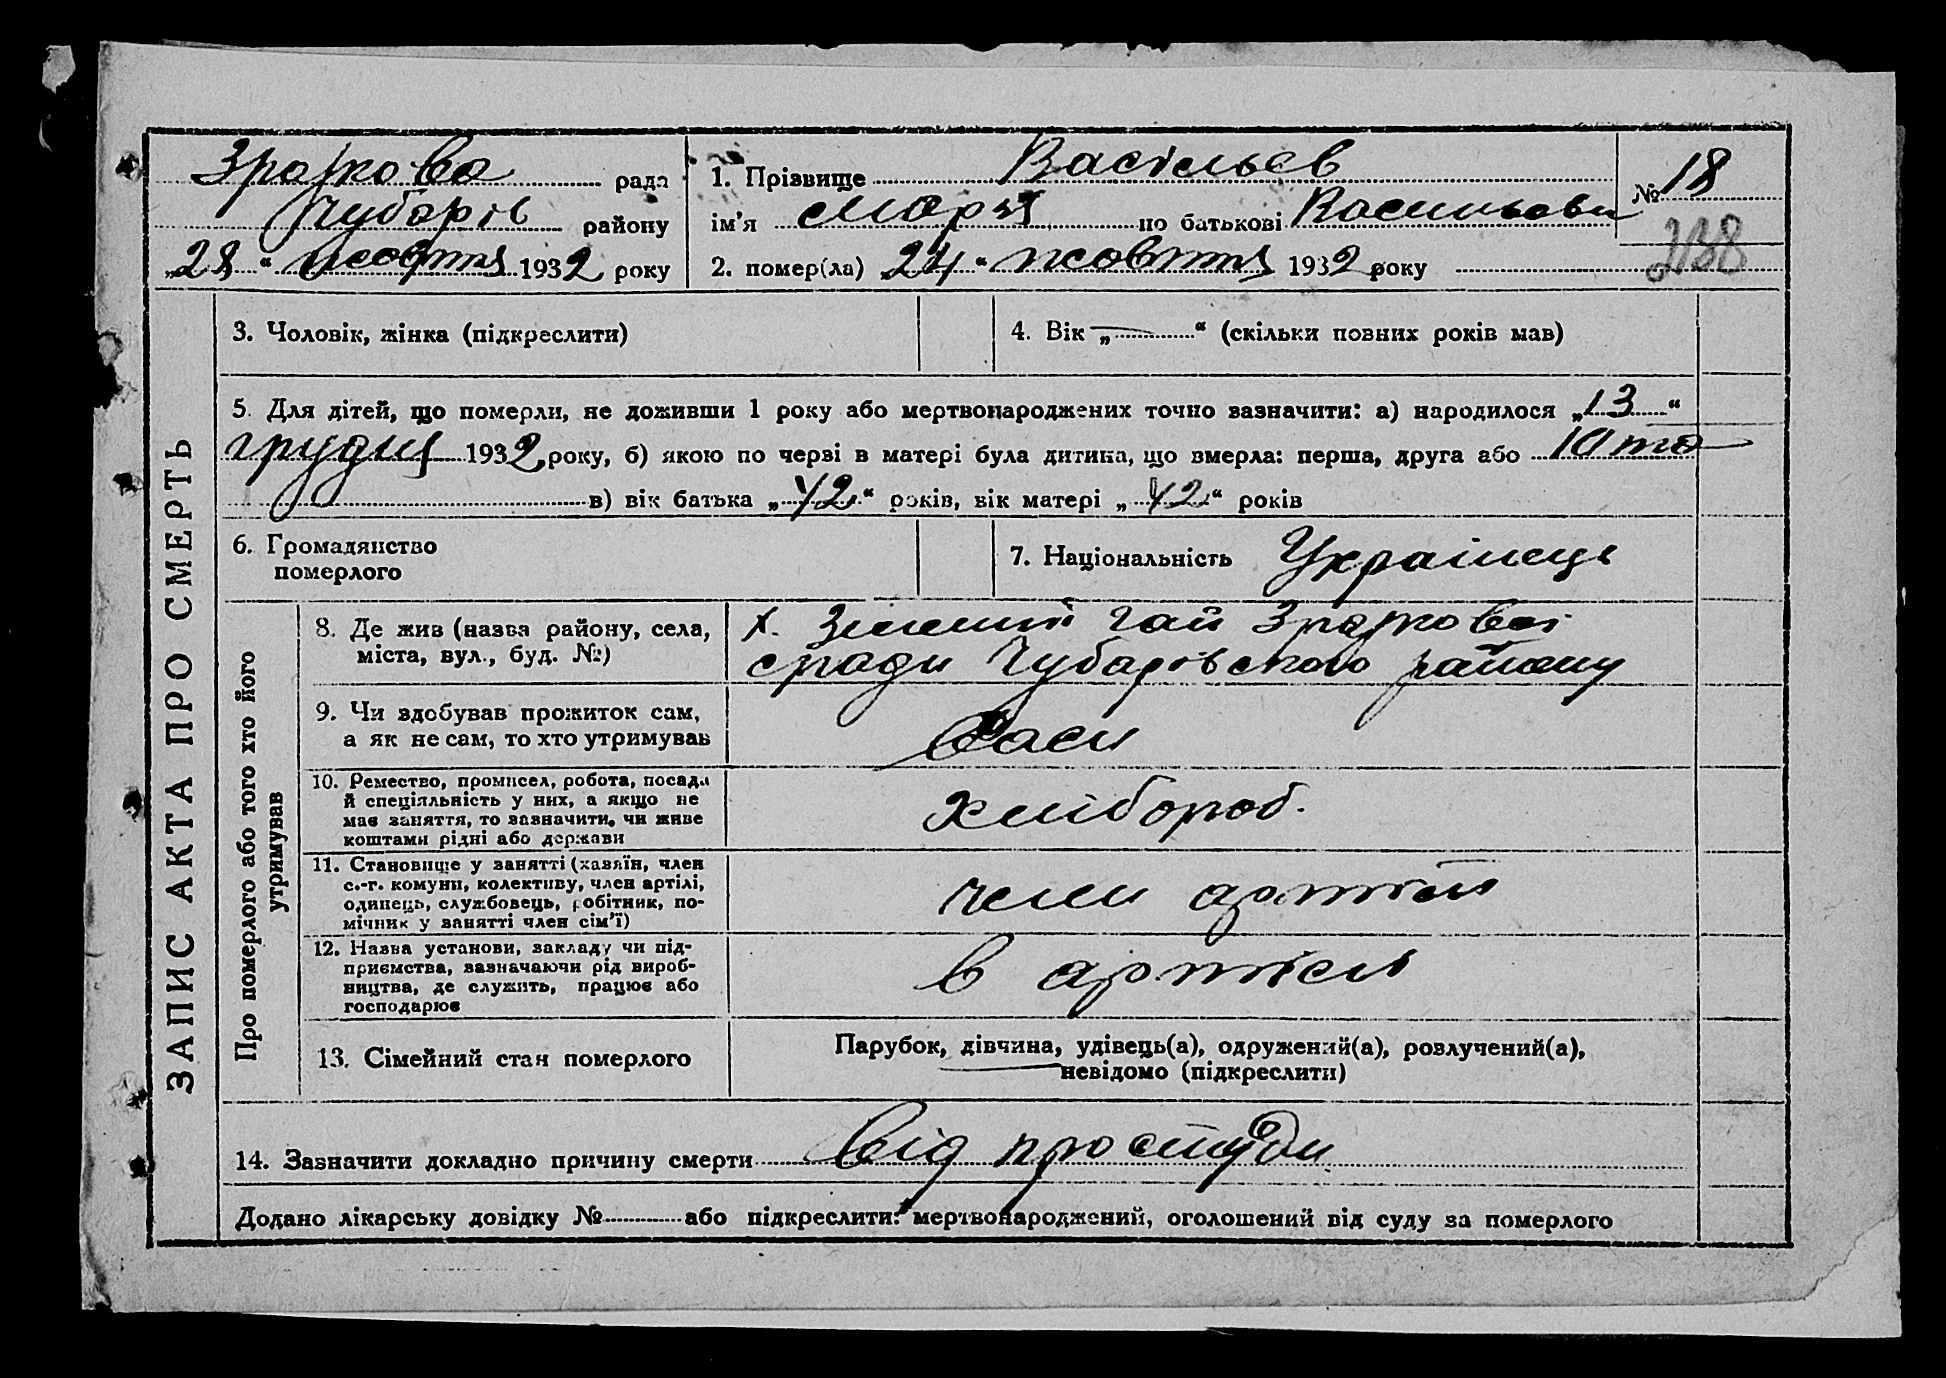 Зразкова рада
Чубарів району
„28“ жовтня 1932 року
1. Прізвище Васільєв
ім'я Марія по батькові Васильови
2. помер(ла) „24“ жовтня 1932 року
№ 18
238
ЗАПИС АКТА ПРО СМЕРТЬ
3. Чоловік, жінка (підкреслити)
4. Вік „—“ (скільки повних років мав)
5. Для дітей, що померли, не доживши 1 року або мертвонароджених точно зазначити: а) народилося „13“
грудня 1932 року, б) якою по черві в матері була дитина, що вмерла: перша, друга або 10 та
в) вік батька „42“ років, вік матері „42“ років
6. Громадянство
померлого
7. Національність Українець
Про померлого або того хто його
утримував
8. Де жив (назва району, села,
міста, вул., буд. №)
х. Зелений Гай
Чубарівського району
9. Чи здобував прожиток сам,
а як не сам, то хто утримував
10. Ремество, промисел, робота, посада
й спеціяльність у них, а якщо не
має заняття, то зазначити, чи живе
коштами рідні або держави
хлібороб.
11. Становище у занятті (хазяїн, член
с.-г. комуни, колективу, член артілі,
одинець, службовець, робітник, по-
мічник у занятті член сім'ї)
член артіли
12. Назва установи, закладу чи під-
приємства, зазначаючи рід вироб-
ництва, де служить, працює або
господарює
в артіли
13. Сімейний стан померлого
Парубок, дівчина, удівець(а), одружений(а), розлучений(а),
невідомо (підкреслити)
14. Зазначити докладно причину смерти від простуди
Додано лікарську довідку № або підкреслити: мертвонароджений, оголошений від суду за померлого